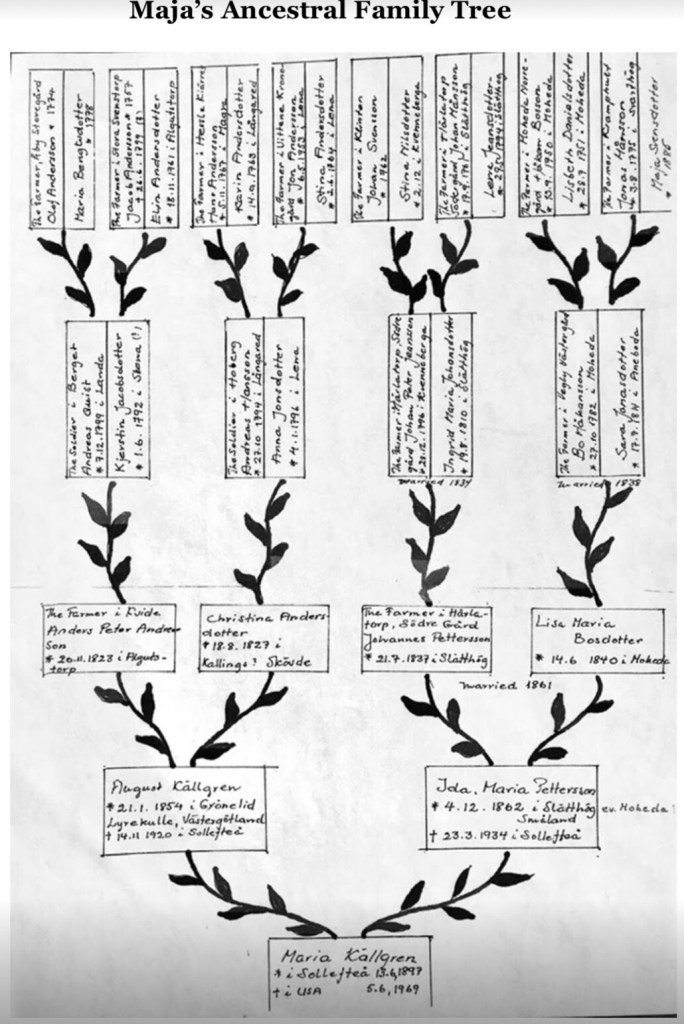 Maja's Ancestral Family Tree
The Farmer, Åby Storegård
Olaf Andersson * 1774
Maria Bengtsdotter
* 1778
The Farmer i Stora Svenstorp
Jacob Andersson * 1757
† 26.6.1799 (?)
Elin Andersdotter
* 18.11.1961 i Algutstorp
The Farmer i
Hans Andersson
Karin Andersdotter
* 14.9.1963 i Långared
The Farmer i Vittene Krono-
gård Jon Andersson
* 6.5.1953 i Lena
Stina Andersdotter
* 2.6.1964 i Lena
The Farmer i Klinten
Johan Svensson
* 1962
Stina Nilsdotter
* 2.12 i Kvenneberga
The Farmer i Hårlatorp
Södergård Johan Månsson
i Slätthög
Lena Jeansdotter
i Slätthög
The Farmer i Moheda Norre-
gård Håkan Bosson
* 13.9.1950 i Moheda
Lisbeth Danielsdotter
* 28.9.1951 i Moheda
The Farmer i
Jonas Månsson
* 3.8.1775 i
Maja Svensdotter
The Soldier i Berget
Andreas Quist
* 7.12.1799 i Landa
Kjerstin Jacobsdotter
* 1.6.1792 i Skona (?)
The Soldier i Hoberg
Andreas Hansson
* 27.10 1794 i Långared
Anna Jonsdotter
* 4.1.1796 i Lena
The Farmer, Hårlatorp, Södre
gård Johan Peter Jeansson
* 21.12.1796 i Kvenneberga
Ingrid Maria Johansdotter
* 19.8.1810 i Slätthög
Married 1837
The Farmer i Vegby Västergård
Bo Håkansson
* 27.10 1782 i Moheda
Sara Jonasdotter
* 17.9.1814 i Aneboda
Married 1838
The Farmer i Kvide
Anders Peter Andres
Son
* 20.11.1823 i Alguts-
torp
Christina Anders-
dotter
* 18.8.1827 i
Kallings? Skövde
The Farmer i Hårla-
torp, Södre Gård
Johannes Pettersson
* 21.7.1837 i Slätthög
Lisa Maria
Bosdotter
* 14.6 1840 i Moheda
Married 1861
August Källgren
* 21.1. 1854 i Grönelid
Lyrekulle, Västergötland
† 14.11 1920 i Sollefteå
Ida, Maria Pettersson
* 4.12. 1862 i Slätthög ev. Moheda
Småland
† 23.3.1934 i Sollefteå
Maria Källgren
* i Sollefteå 13.6,1897
† i USA 5.6,1969